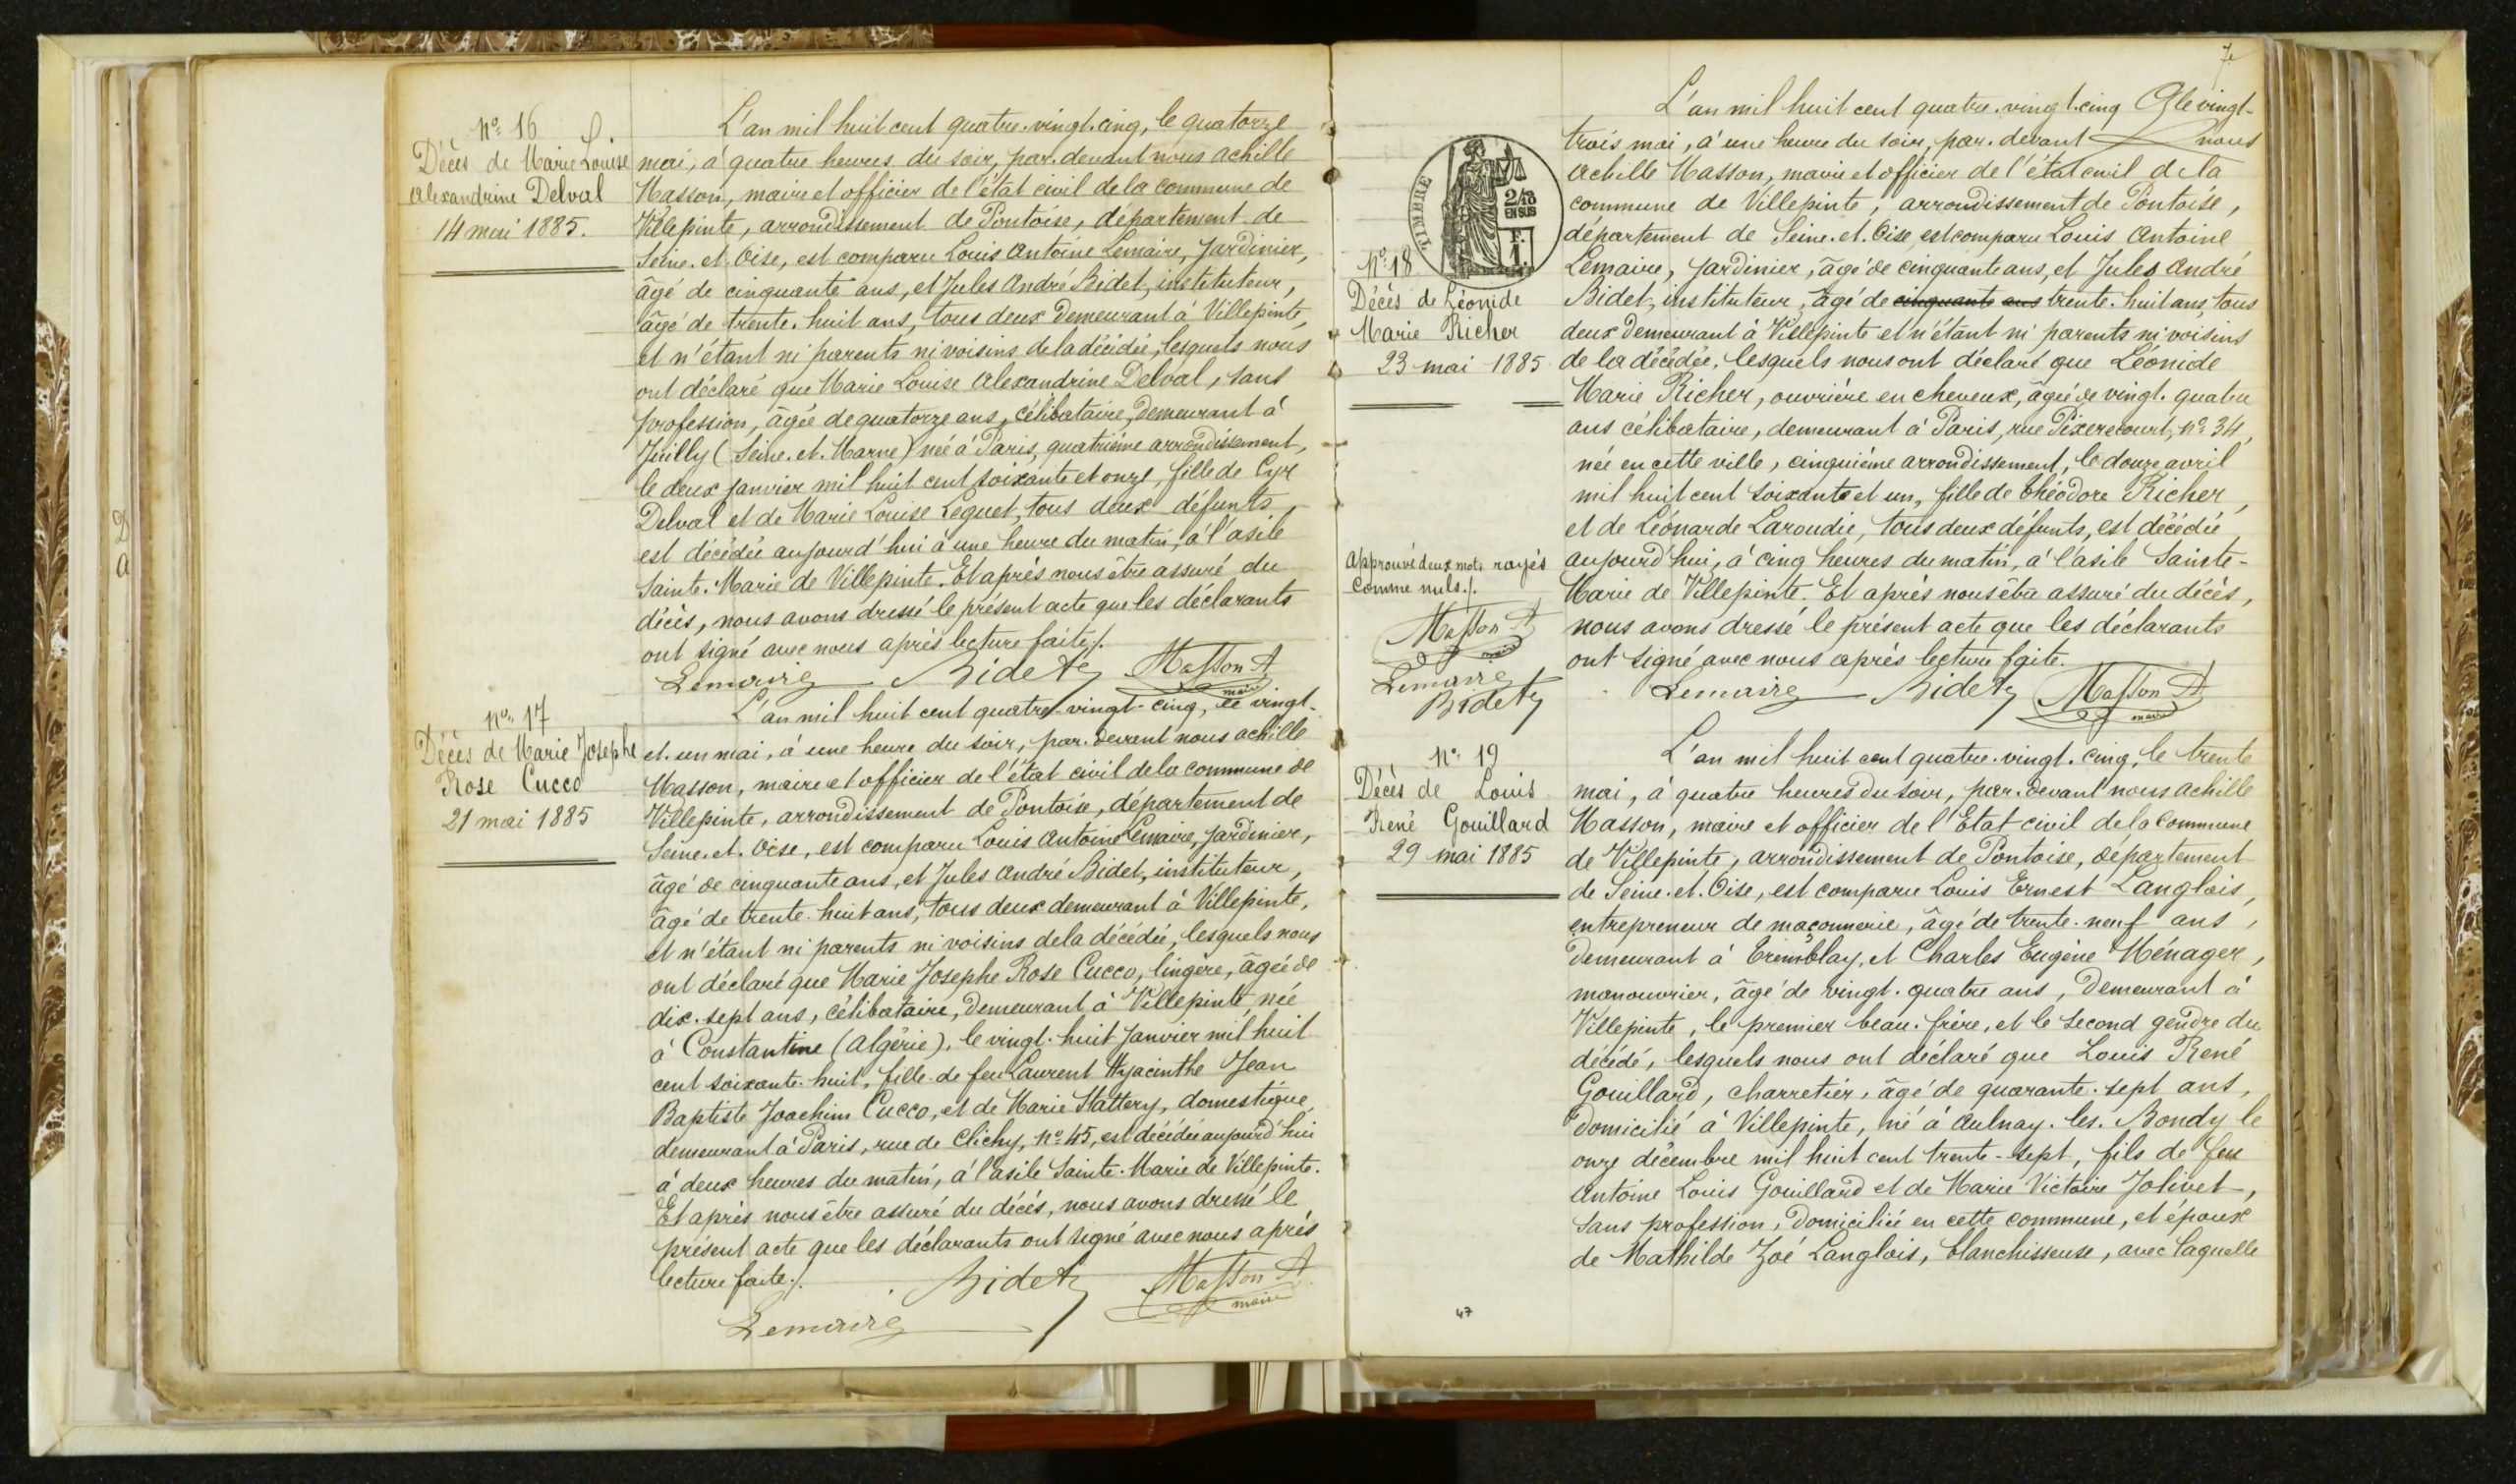 D
A
N° 16
Décès de Marie Louise
Alexandrine Delval
14 mai 1885.
L'an mil huit cent quatre-vingt-cinq, le quatorze
mai, à quatre heures du soir, par-devant nous Achille
Masson, maire et officier de l'état civil de la commune de
Villepinte, arrondissement de Pontoise, département de
Seine-et-Oise, est comparu Louis Antoine Lemaire, jardinier,
âgé de cinquante ans, et Jules André Bidet, instituteur,
âgé de trente-huit ans, tous deux demeurant à Villepinte,
et n'étant ni parents ni voisins de la décédée, lesquels nous
ont déclaré que Marie Louise Alexandrine Delval, sans
profession, âgée de quatorze ans, célibataire, demeurant à
Juilly (Seine-et-Marne) née à Paris, quatrième arrondissement,
le deux janvier mil huit cent soixante et onze, fille de Cyr
Delval et de Marie Louise Lequet, tous deux défunts,
est décédée aujourd'hui à une heure du matin, à l'asile
Sainte-Marie de Villepinte. Et après nous être assuré du
décès, nous avons dressé le présent acte que les déclarants
ont signé avec nous après lecture faite./.
Lemaire Bidet Masson A
maire
N° 17
Décès de Marie Josephe
Rose Cucco
21 mai 1885
L'an mil huit cent quatre-vingt-cinq, le vingt-
et-un mai, à une heure du soir, par-devant nous Achille
Masson, maire et officier de l'état civil de la commune de
Villepinte, arrondissement de Pontoise, département de
Seine-et-Oise, est comparu Louis Antoine Lemaire, jardinier,
âgé de cinquante ans, et Jules André Bidet, instituteur,
âgé de trente-huit ans, tous deux demeurant à Villepinte,
et n'étant ni parents ni voisins de la décédée, lesquels nous
ont déclaré que Marie Josephe Rose Cucco, lingère, âgée de
dix-sept ans, célibataire, demeurant à Villepinte née
à Constantine (Algérie), le vingt-huit janvier mil huit
cent soixante-huit, fille de feu Laurent Hyacinthe Jean
Baptiste Joachim Cucco, et de Marie Hattery, domestique,
demeurant à Paris, rue de Clichy, n° 45, est décédée aujourd'hui
à deux heures du matin, à l'asile Sainte-Marie de Villepinte.
Et après nous être assuré du décès, nous avons dressé le
présent acte que les déclarants ont signé avec nous après
lecture faite./. Bidet Masson A
maire
Lemaire
7e
TIMBRE
2/10
EN SUS
F.
1.
N° 18
Décès de Léonide
Marie Richer
23 mai 1885
L'an mil huit cent quatre-vingt-cinq le vingt-
trois mai, à une heure du soir, par-devant nous
Achille Masson, maire et officier de l'état civil de la
commune de Villepinte, arrondissement de Pontoise,
département de Seine-et-Oise, est comparu Louis Antoine
Lemaire, jardinier, âgé de cinquante ans, et Jules André
Bidet, instituteur, âgé de cinquante ans trente-huit ans, tous
deux demeurant à Villepinte et n'étant ni parents ni voisins
de la décédée, lesquels nous ont déclaré que Léonide
Marie Richer, ouvrière en cheveux, âgée de vingt-quatre
ans célibataire, demeurant à Paris, rue Pixerecourt, n° 34,
née en cette ville, cinquième arrondissement, le douze avril
mil huit cent soixante et un, fille de Théodore Richer,
et de Léonarde Laroudie, tous deux défunts, est décédée
aujourd'hui, à cinq heures du matin, à l'asile Sainte-
Marie de Villepinte. Et après nous être assuré du décès,
nous avons dressé le présent acte que les déclarants
ont signé avec nous après lecture faite.
Lemaire Bidet Masson A
maire
Approuvé deux mots rayés
comme nuls./.
Masson A
maire
Lemaire
Bidet
N° 19
Décès de Louis
René Gouillard
29 mai 1885
L'an mil huit cent quatre-vingt-cinq, le trente
mai, à quatre heures du soir, par-devant nous Achille
Masson, maire et officier de l'Etat civil de la commune
de Villepinte, arrondissement de Pontoise, département
de Seine-et-Oise, est comparu Louis Ernest Langlois,
entrepreneur de maçonnerie, âgé de trente-neuf ans,
demeurant à Tremblay, et Charles Eugène Ménager,
manouvrier, âgé de vingt-quatre ans, demeurant à
Villepinte, le premier beau-frère, et le second gendre du
décédé, lesquels nous ont déclaré que Louis René
Gouillard, charretier, âgé de quarante-sept ans,
domicilié à Villepinte, né à Aulnay-les-Bondy le
onze décembre mil huit cent trente-sept, fils de feu
Antoine Louis Gouillard et de Marie Victoire Jolivet,
sans profession, domiciliée en cette commune, et époux
de Mathilde Zoé Langlois, blanchisseuse, avec laquelle
47